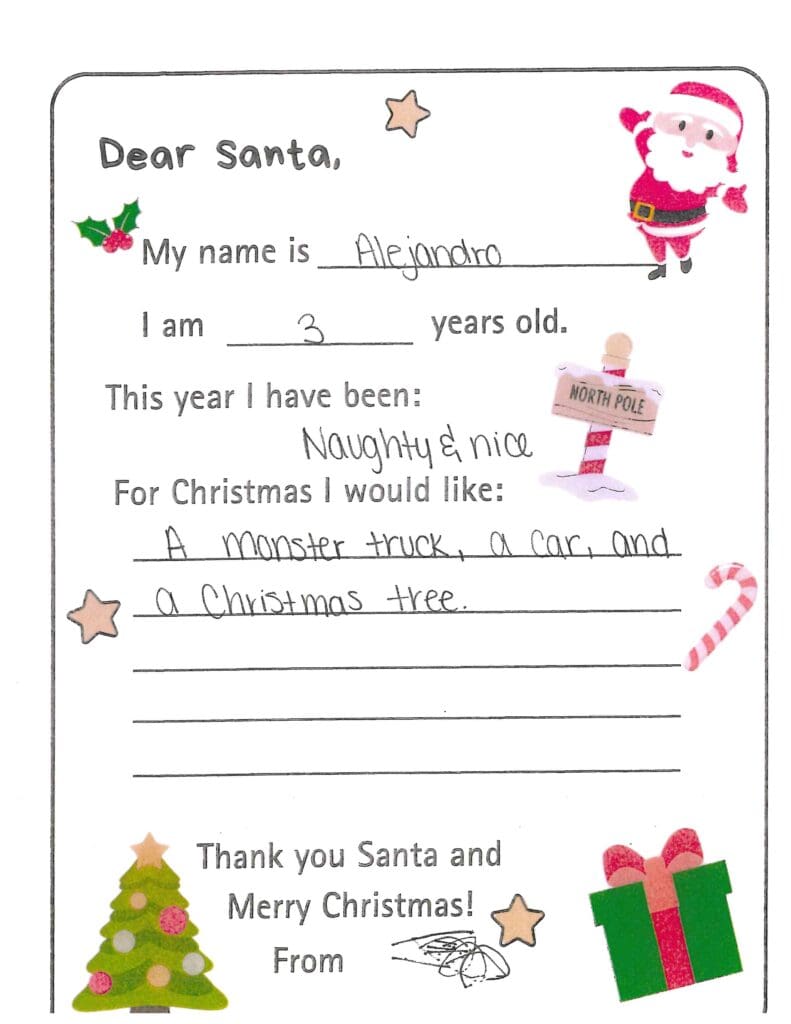 Dear Santa,
My name is Alejandro
I am 3 years old.
This year I have been:
NORTH POLE
Naughty & nice
For Christmas I would like:
A monster truck, a car, and
a Christmas tree.
Thank you Santa and
Merry Christmas!
From